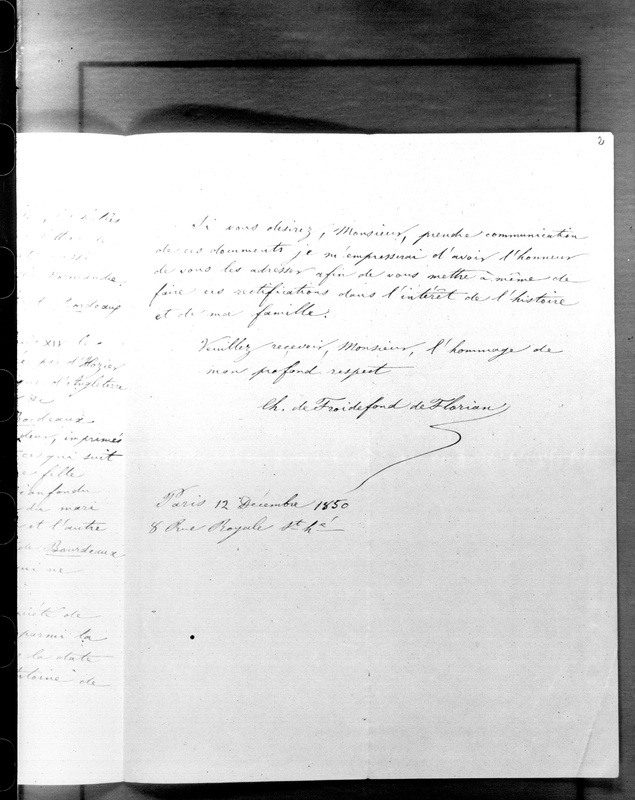 2
Si vous desirez, Monsieur, prendre communication
de ces documents je m'empresserai d'avoir l'honneur
de vous les adresser afin de vous mettre à même de
faire ces rectifications dans l'intérêt de l'histoire
et de ma famille.
Veuillez reçevoir, Monsieur, l'hommage de
mon profond respect
Ch. de Froidefond de Florian
Paris 12 Décembre 1850
8 Rue Royale St hé
Bordeaux
XIV
d'Hozier
d'Angleterre
Bordeaux
imprimés
qui suit
fille
confondu
du mari
et l'autre
Bourdeaux
de
parmi la
la date
de